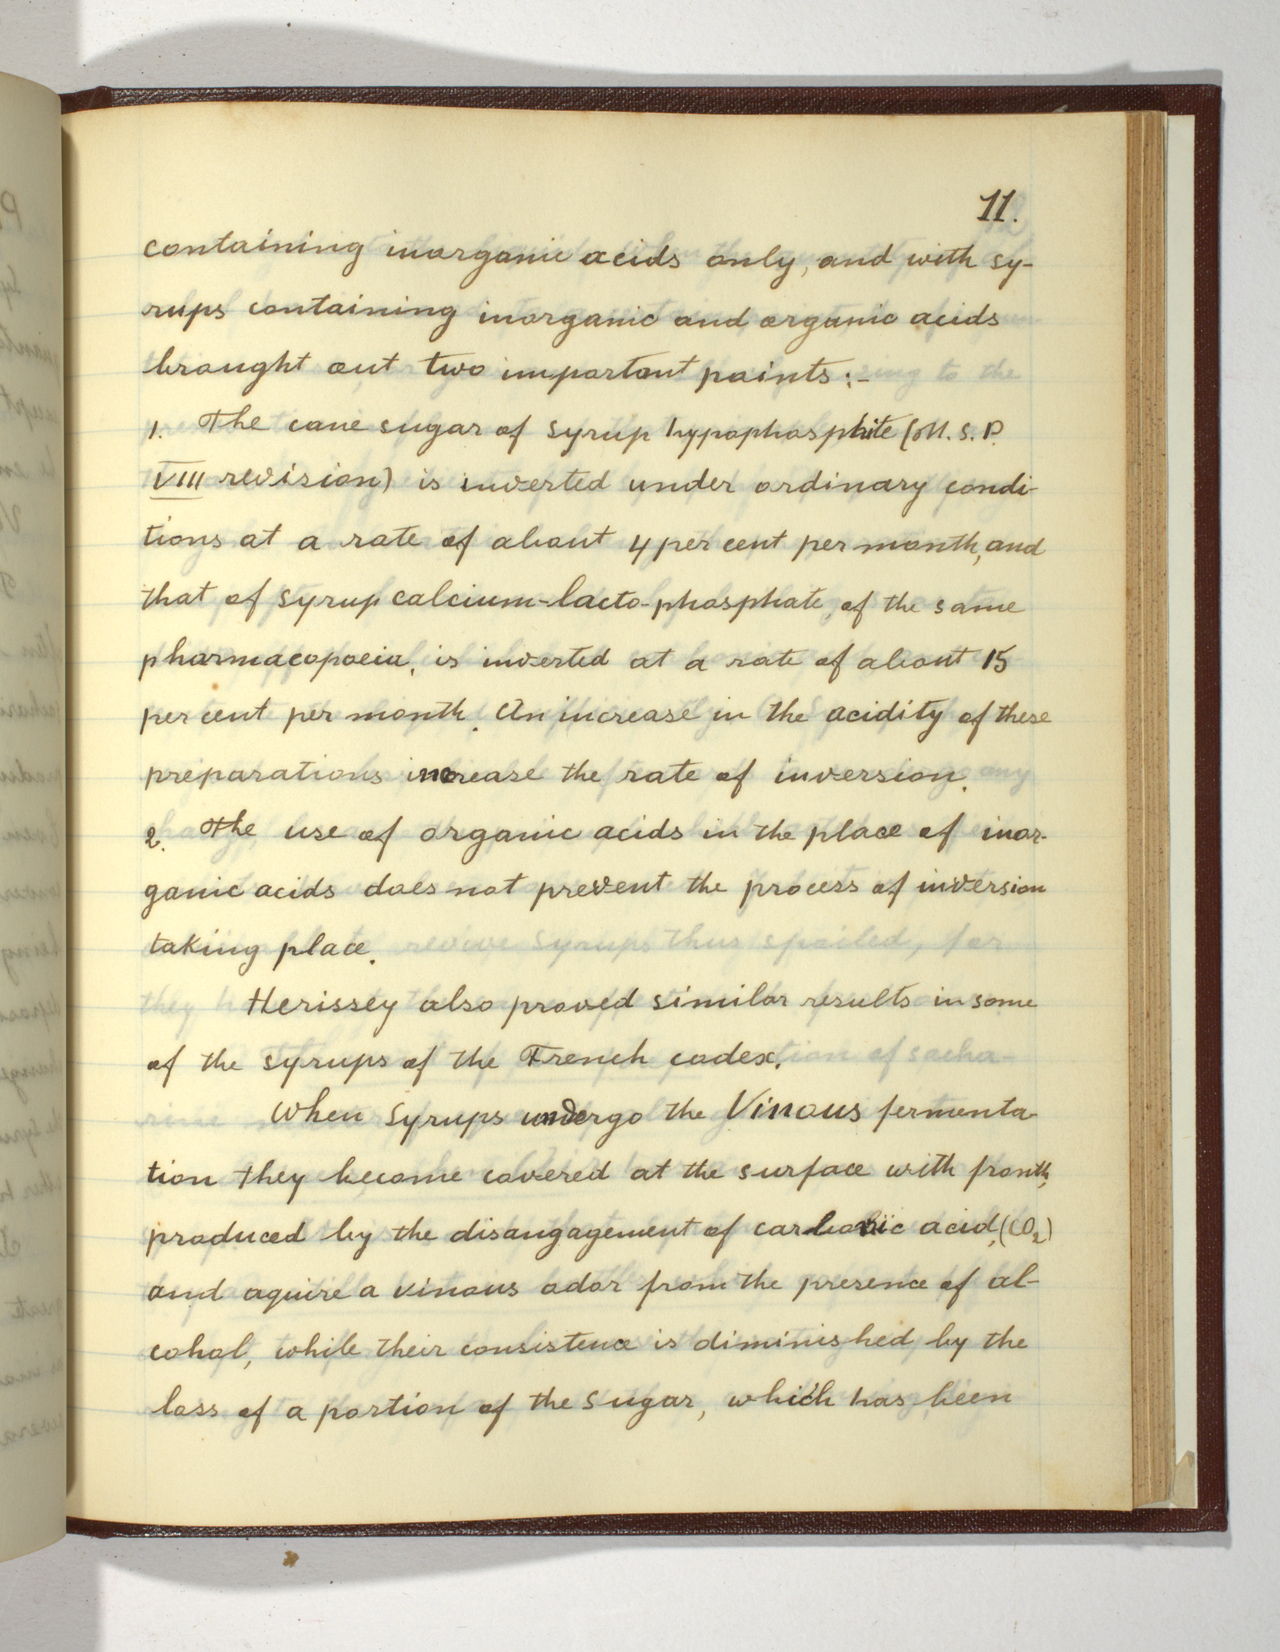 11.
containing inorganic acids only, and with sy-
rups containing inorganic and organic acids
brought out two important points :-
1. The cane sugar of syrup hypophosphite (U. S. P.
VIII revision) is inverted under ordinary condi-
tions at a rate of about 4 per cent per month, and
that of syrup calcium-lacto-phosphate, of the same
pharmacopoeia, is inverted at a rate of about 15
per cent per month. An increase in the acidity of these
preparations increase the rate of inversion.
2. The use of organic acids in the place of inor-
ganic acids does not prevent the process of inversion
taking place.
Herissey also proved similar results in some
of the syrups of the French codex.
When Syrups undergo the Vinous fermenta-
tion they become covered at the surface with fronth,
produced by the disangagement of carbonic acid, (CO2)
and aquire a vinous odor from the presence of al-
cohol, while their consistence is diminished by the
loss of a portion of the sugar, which has been